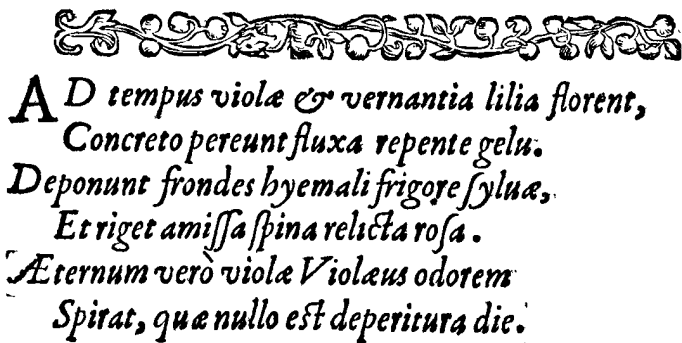 AD tempus violæ & vernantia lilia florent,
Concreto pereunt fluxa repente gelu.
Deponunt frondes hyemali frigore ſyluæ,
Et riget amiſſa ſpina relicta roſa.
Æternum verò violæ Violæus odorem
Spirat, quæ nullo eſt deperitura die.